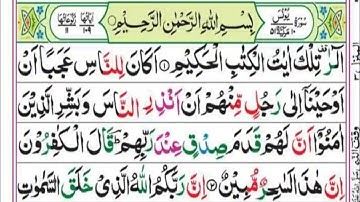 سورة يونس
بسم الله الرحمن الرحيم
آياتها ١٠٩
ركوعاتها ١١
الٓرٰ تِلْكَ اٰيٰتُ الْكِتٰبِ الْحَكِيْمِ ۝١ اَكَانَ لِلنَّاسِ عَجَبًا اَنْ
اَوْحَيْنَاۤ اِلٰى رَجُلٍ مِّنْهُمْ اَنْ اَنْذِرِ النَّاسَ وَبَشِّرِ الَّذِيْنَ
اٰمَنُوْۤا اَنَّ لَهُمْ قَدَمَ صِدْقٍ عِنْدَ رَبِّهِمْ ؔؕ قَالَ الْكٰفِرُوْنَ
اِنَّ هٰذَا لَسٰحِرٌ مُّبِيْنٌ ۝٢ اِنَّ رَبَّكُمُ اللّٰهُ الَّذِيْ خَلَقَ السَّمٰوٰتِ